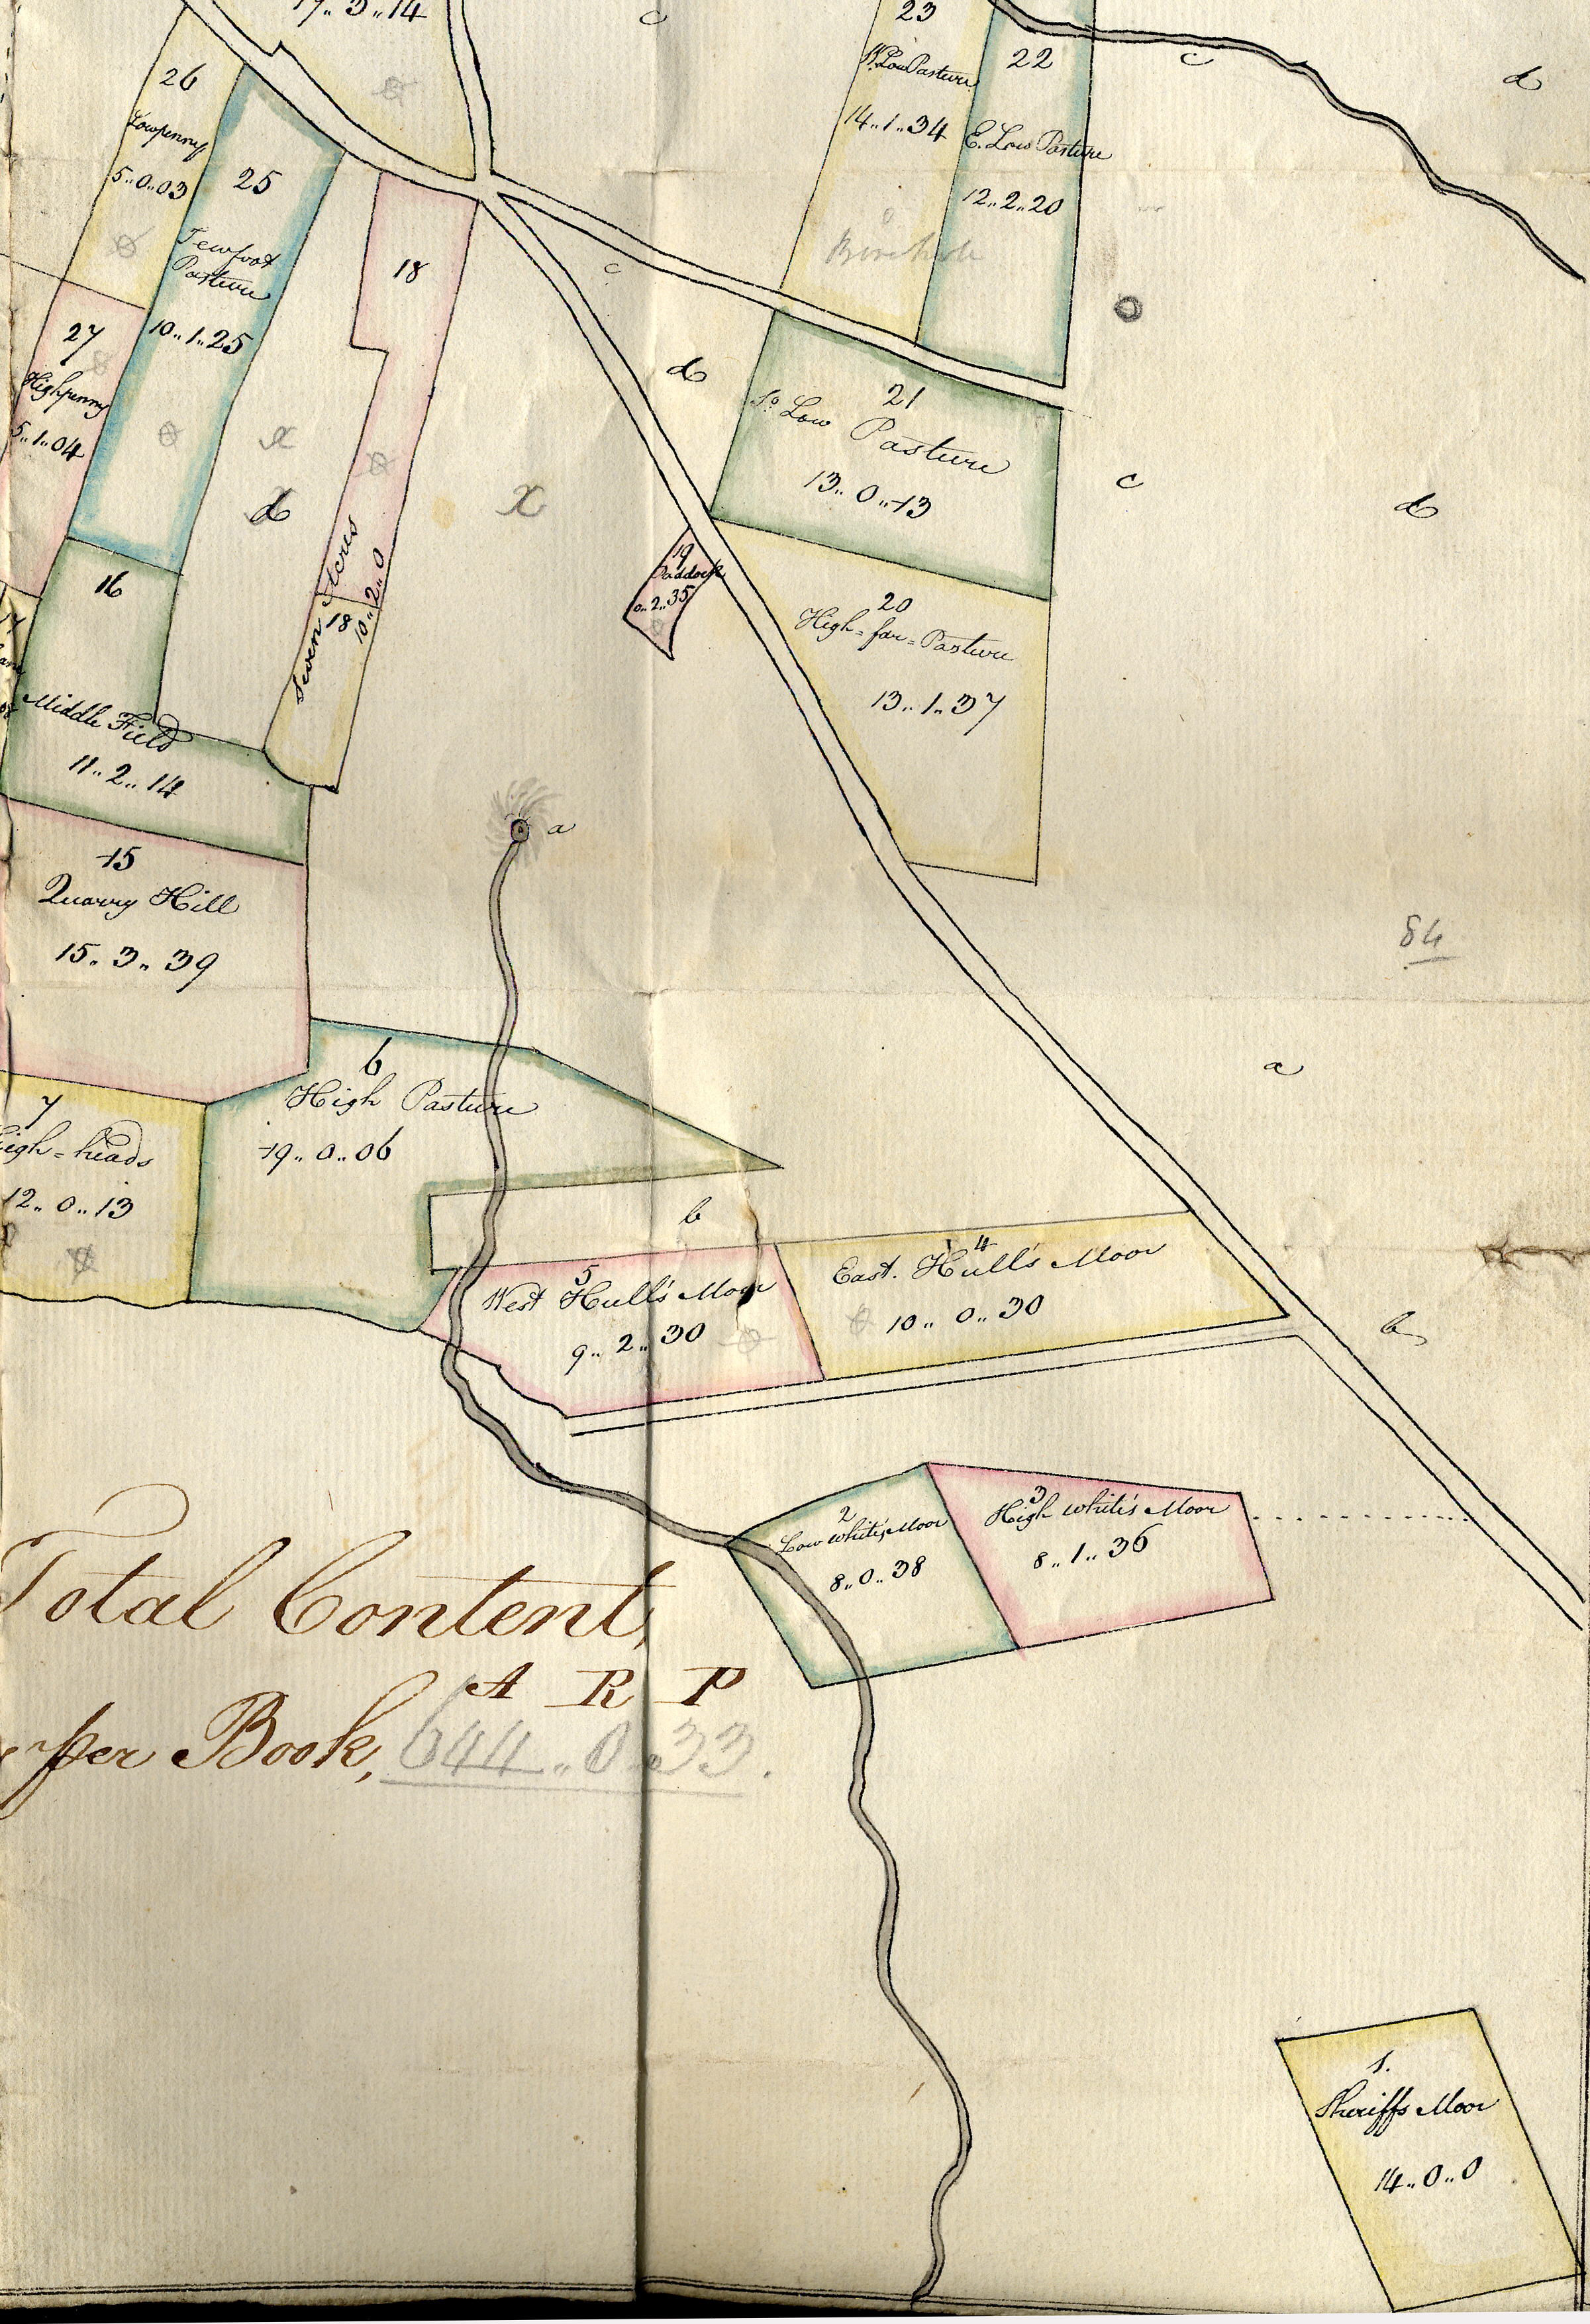 17..3..14
c
23
W. Low Pasture
14..1..34
22
E. Low Pasture
12..2..20
c
d
26
Lowpenny
5..0..03
25
Tewfoot
Pasture
10..1..25
18
c
Borehole
27
Highpenny
5..1..04
d
21
So. Low Pasture
13..0..13
x
d
X
c
d
Seven Acres
10..2..0
18
19
Paddock
0..2..35
20
High=far=Pasture
13..1..37
16
Middle Field
11..2..14
17
a
15
Quarry Hill
15..3..39
84
6
High Pasture
19..0..06
a
7
High=heads
12..0..13
b
5
West Hull's Moor
9..2..30
4
East. Hull's Moor
10..0..30
b
2
Low White's Moor
8..0..38
3
High White's Moor
8..1..36
Total Content,
A R P
per Book, 644..0..33.
1.
Sheriffs Moor
14..0..0